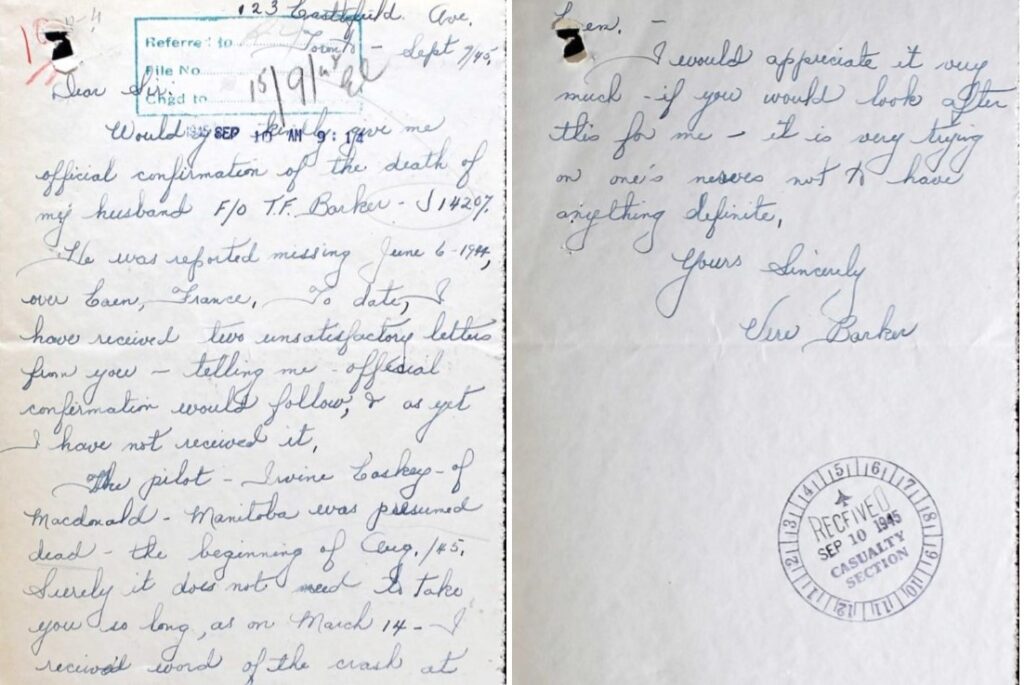 123 Castlefield Ave.
Toronto - Sept 7/45.
Referred to
File No
Chgd to
15/9/
Dear Sir:
1945 SEP 10 AM 9:14
Would you kindly give me
official confirmation of the death of
my husband F/O T.F. Barker - J 14207.
He was reported missing June 6-1944,
over Caen, France. To date, I
have received two unsatisfactory letters
from you - telling me - official
confirmation would follow, & as yet
I have not received it.
The pilot - Irvine Caskey - of
Macdonald - Manitoba was presumed
dead - the beginning of Aug. /45.
Surely it does not need to take
you so long, as on March 14 - I
received word of the crash at
Caen. -
I would appreciate it very
much - if you would look after
this for me - it is very trying
on one's nerves not to have
anything definite.
Yours Sincerely
Vere Barker
RECEIVED
SEP 10 1945
CASUALTY
SECTION